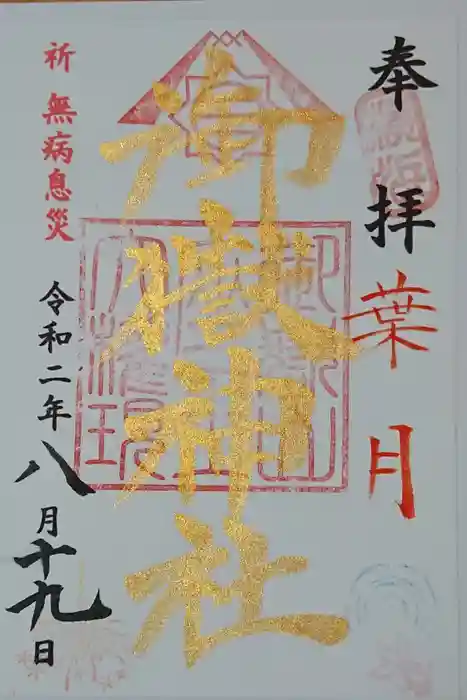 奉拝
葉月
御嶽神社
祈 無病息災
令和二年八月十九日